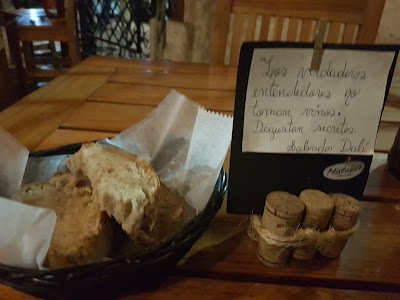 "Los verdaderos
entendedores no
toman vinos.
Degustan secretos
Salvador Dalí